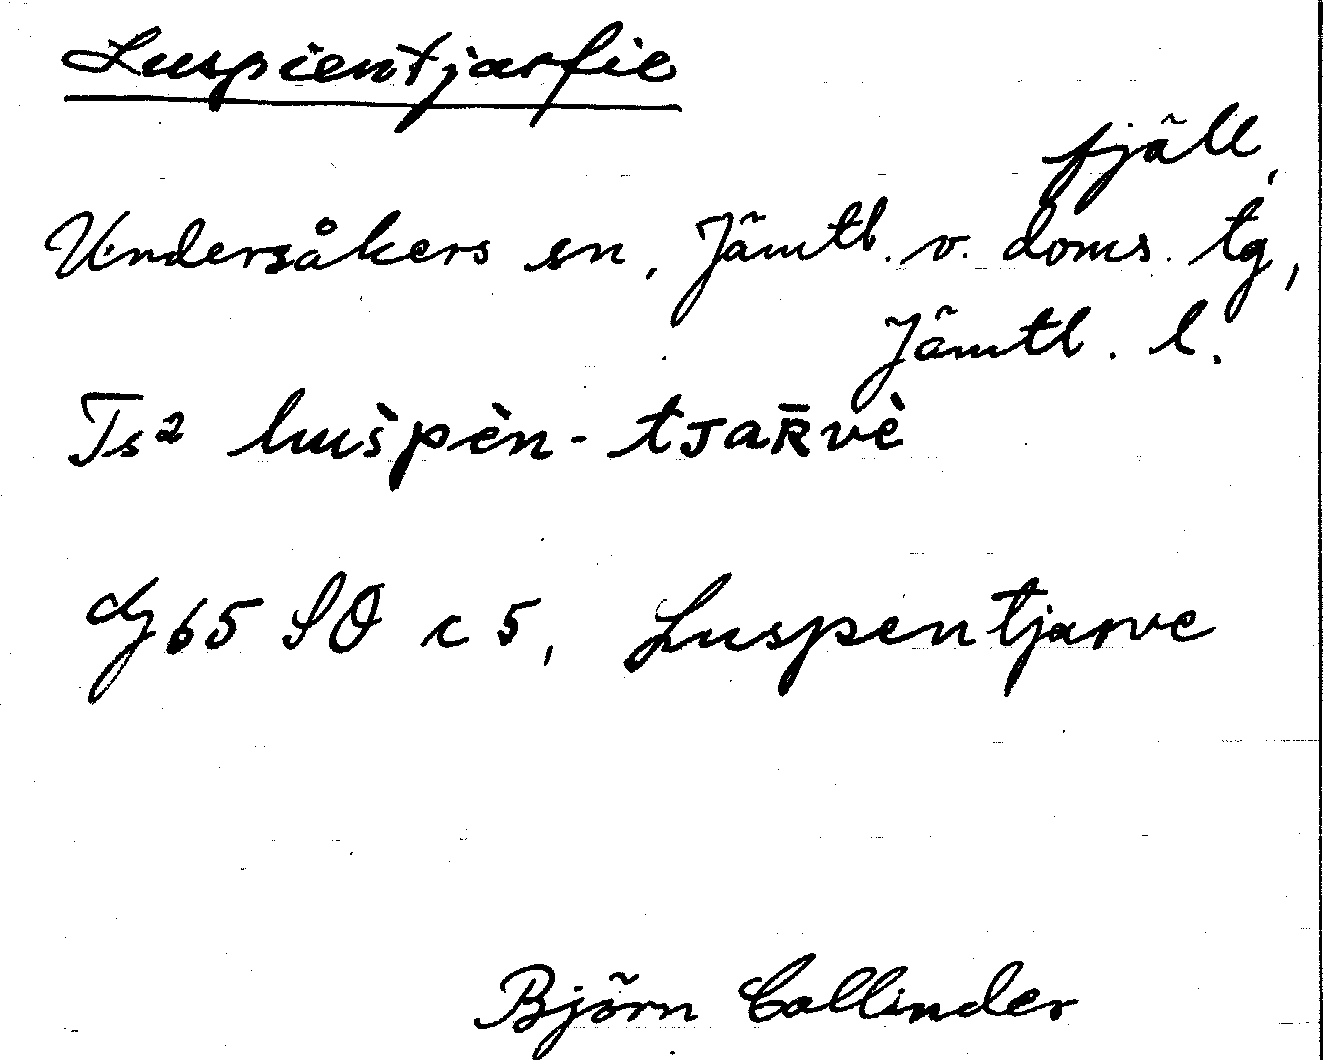 Luspientjarfie
fjäll,
Undersåkers sn, Jämtl. v. doms. tg,
Jämtl. l.
Ts² luùspèn-tᴊaʀ̄vè
Gg 65 SO c 5, Luspentjarve
Björn Collinder